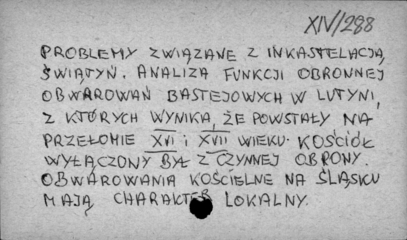 XIV/288
PROBLEMY ZWIĄZANE Z INKASTELACJĄ
ŚWIĄTYŃ. ANALIZA FUNKCJI OBRONNEJ
OBWAROWAŃ BASTEJOWYCH W LUTYNI,
Z KTÓRYCH WYNIKA, ŻE POWSTAŁY NA
PRZEŁOMIE XVI i XVII WIEKU. KOŚCIÓŁ
WYŁĄCZONY BYŁ Z CZYNNEJ OBRONY.
OBWAROWANIA KOŚCIELNE NA ŚLĄSKU
MAJĄ CHARAKTER LOKALNY.